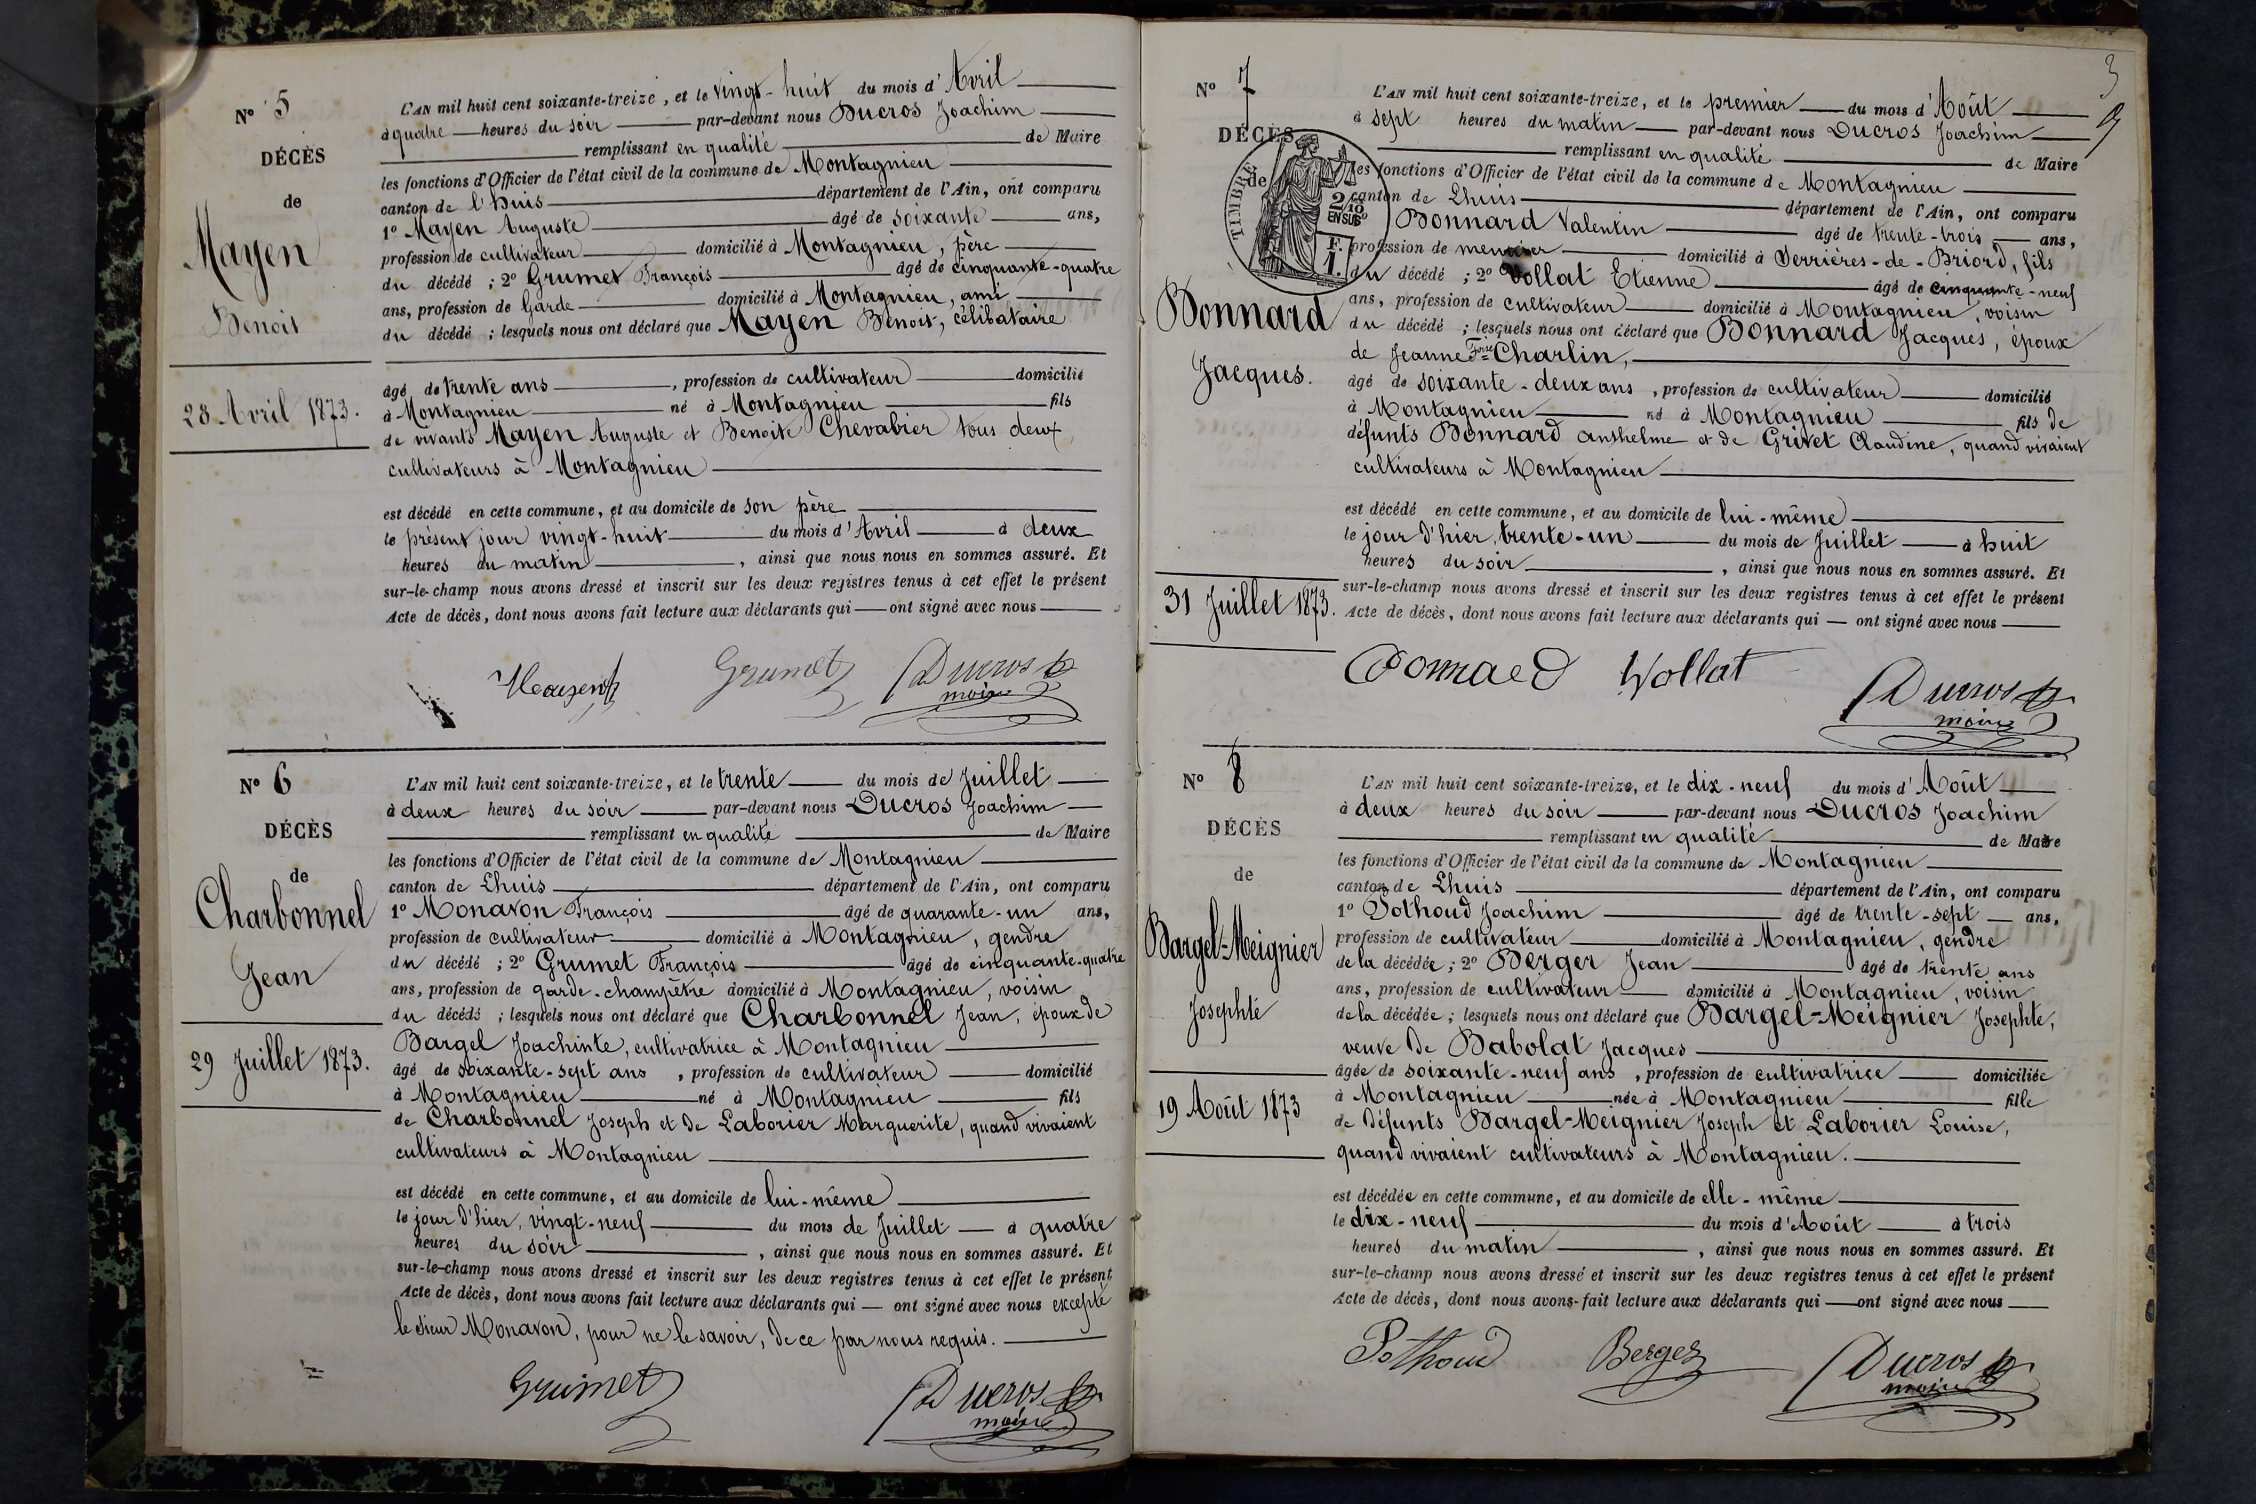 N° 5
DÉCÈS
de
Mayen
Benoit
28 Avril 1873.
L'AN mil huit cent soixante-treize, et le vingt-huit du mois d'Avril
à quatre heures du soir par-devant nous Ducros Joachim
remplissant en qualité de Maire
les fonctions d'Officier de l'état civil de la commune de Montagnieu
canton de l'huis département de l'Ain, ont comparu
1° Mayen Auguste âgé de soixante ans,
profession de cultivateur domicilié à Montagnieu, père
du décédé ; 2° Grumet François âgé de cinquante-quatre
ans, profession de Garde domicilié à Montagnieu, ami
du décédé ; lesquels nous ont déclaré que Mayen Benoit, célibataire
âgé de trente ans, profession de cultivateur domicilié
à Montagnieu né à Montagnieu fils
de vivants Mayen Auguste et Benoite Chevabier tous deux
cultivateurs à Montagnieu
est décédé en cette commune, et au domicile de son père
le présent jour vingt-huit du mois d'Avril à deux
heures du matin, ainsi que nous nous en sommes assuré. Et
sur-le-champ nous avons dressé et inscrit sur les deux registres tenus à cet effet le présent
Acte de décès, dont nous avons fait lecture aux déclarants qui ont signé avec nous
Grumet Ducros
maire
N° 6
DÉCÈS
de
Charbonnel
Jean
29 Juillet 1873.
L'AN mil huit cent soixante-treize, et le trente du mois de Juillet
à deux heures du soir par-devant nous Ducros Joachim
remplissant en qualité de Maire
les fonctions d'Officier de l'état civil de la commune de Montagnieu
canton de Lhuis département de l'Ain, ont comparu
1° Monavon François âgé de quarante-un ans,
profession de cultivateur domicilié à Montagnieu, gendre
du décédé ; 2° Grumet François âgé de cinquante-quatre
ans, profession de garde-champêtre domicilié à Montagnieu, voisin
du décédé ; lesquels nous ont déclaré que Charbonnel Jean, époux de
Bargel Joachinte, cultivatrice à Montagnieu
âgé de soixante-sept ans, profession de cultivateur domicilié
à Montagnieu né à Montagnieu fils
de Charbonnel Joseph et de Laborier Marguerite, quand vivaient
cultivateurs à Montagnieu
est décédé en cette commune, et au domicile de lui-même
le jour d'hier, vingt-neuf du mois de Juillet à quatre
heures du soir, ainsi que nous nous en sommes assuré. Et
sur-le-champ nous avons dressé et inscrit sur les deux registres tenus à cet effet le présent
Acte de décès, dont nous avons fait lecture aux déclarants qui ont signé avec nous excepté
le sieur Monavon, pour ne le savoir, de ce par nous requis.
Grumet Ducros
maire
3
N° 7
DÉCÈS
de
TIMBRE
2/10
EN SUS
F.
1.
Bonnard
Jacques.
31 Juillet 1873.
L'AN mil huit cent soixante-treize, et le premier du mois d'Août
à sept heures du matin par-devant nous Ducros Joachim
remplissant en qualité de Maire
les fonctions d'Officier de l'état civil de la commune de Montagnieu
canton de Lhuis département de l'Ain, ont comparu
Bonnard Valentin âgé de trente-trois ans,
profession de menuisier domicilié à Serrières-de-Briord, fils
du décédé ; 2° Vollat Etienne âgé de cinquante-neuf
ans, profession de cultivateur domicilié à Montagnieu, voisin
du décédé ; lesquels nous ont déclaré que Bonnard Jacques, époux
de Jeanne Fçoise Charlin,
âgé de soixante-deux ans, profession de cultivateur domicilié
à Montagnieu né à Montagnieu fils de
défunts Bonnard Anthelme et de Grivet Claudine, quand vivaient
cultivateurs à Montagnieu
est décédé en cette commune, et au domicile de lui-même
le jour d'hier, trente-un du mois de Juillet à huit
heures du soir, ainsi que nous nous en sommes assuré. Et
sur-le-champ nous avons dressé et inscrit sur les deux registres tenus à cet effet le présent
Acte de décès, dont nous avons fait lecture aux déclarants qui ont signé avec nous
Bonnard Vollat Ducros
maire
N° 8
DÉCÈS
de
Bargel-Meignier
Josephte
19 Août 1873
L'AN mil huit cent soixante-treize, et le dix-neuf du mois d'Août
à deux heures du soir par-devant nous Ducros Joachim
remplissant en qualité de Maire
les fonctions d'Officier de l'état civil de la commune de Montagnieu
canton de Lhuis département de l'Ain, ont comparu
1° Pothoud Joachim âgé de trente-sept ans,
profession de cultivateur domicilié à Montagnieu, gendre
de la décédée ; 2° Berger Jean âgé de trente ans
ans, profession de cultivateur domicilié à Montagnieu, voisin
de la décédée ; lesquels nous ont déclaré que Bargel-Meignier Josephte,
veuve de Babolat Jacques
âgée de soixante-neuf ans, profession de cultivatrice domiciliée
à Montagnieu née à Montagnieu fille
de défunts Bargel-Meignier Joseph et Laborier Louise,
quand vivaient cultivateurs à Montagnieu.
est décédée en cette commune, et au domicile de elle-même
le dix-neuf du mois d'Août à trois
heures du matin, ainsi que nous nous en sommes assuré. Et
sur-le-champ nous avons dressé et inscrit sur les deux registres tenus à cet effet le présent
Acte de décès, dont nous avons fait lecture aux déclarants qui ont signé avec nous
Pothoud Berger Ducros
maire